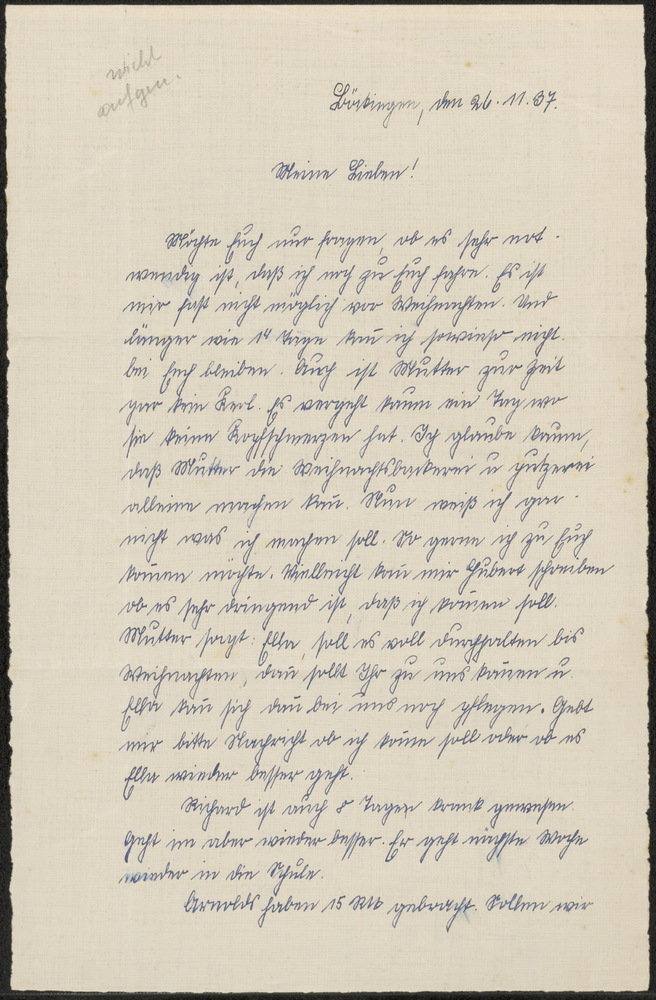 nicht
aufgen.
Böckingen, den 26.11.37.
Meine Lieben!
Möchte Euch nur fragen, ob es sehr not-
wendig ist, daß ich noch zu Euch fahre. Es ist
mir fast nicht möglich vor Weihnachten. Und
länger wie 14 Tage kan ich sowieso nicht
bei Euch bleiben. Auch ist Mutter zur Zeit
gar kein Kerl. Es vergeht kaum ein Tag wo
sie keine Kopfschmerzen hat. Ich glaube kaum,
daß Mutter die Weihnachtsbackerei u putzerei
alleine machen kan. Nun weiß ich gar
nicht was ich machen soll. So gerne ich zu Euch
komen möchte. Vielleicht kan mir Hubert schreiben
ob es sehr dringend ist, daß ich komen soll.
Mutter sagt: Ella, soll es voll durchhalten bis
Weihnachten, dan sollt Ihr zu uns komen u.
Ella kan sich dan bei uns noch pflegen. Gebt
mir bitte Nachricht ob ich kome soll oder ob es
Ella wieder besser geht.
Richard ist auch 8 Tagen krank gewesen.
Geht im aber wieder besser. Er geht nächste Woche
wieder in die Schule.
Arnolds haben 15 RM gebracht. Sollen wir